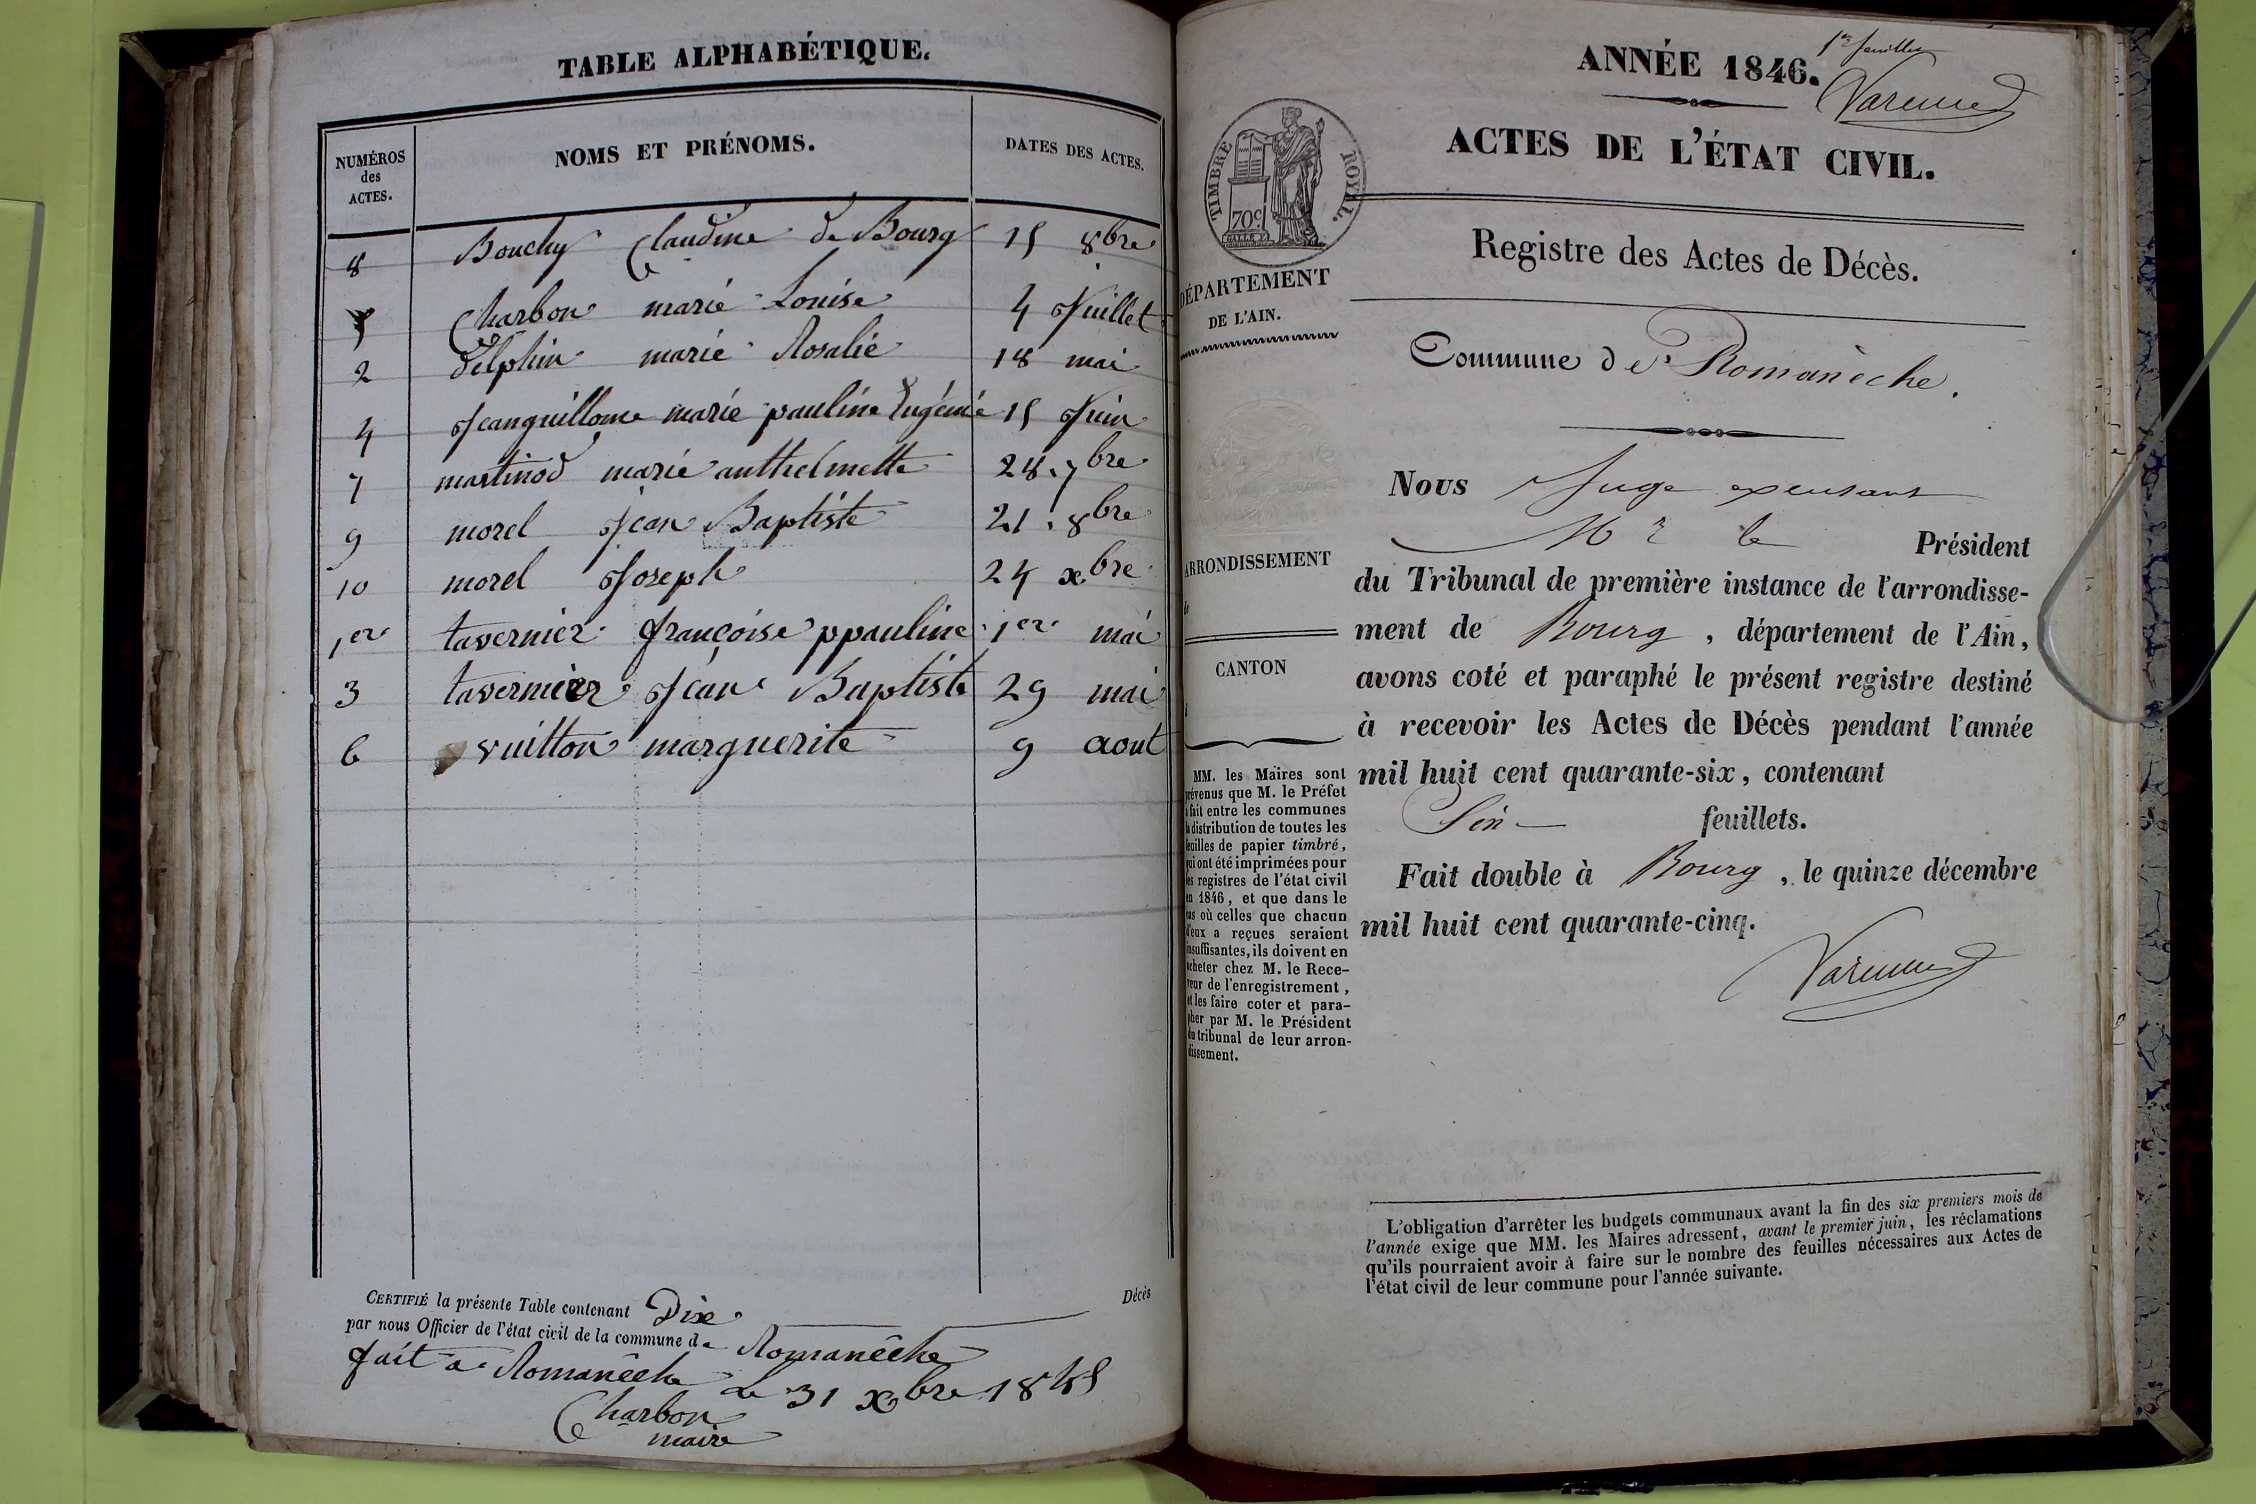 TABLE ALPHABÉTIQUE.
NUMÉROS des ACTES. NOMS ET PRÉNOMS. DATES DES ACTES.
8 Bouchy Claudine de Bourg 15 8bre
5 Charbon marie Louise 4 Juillet
2 delphin marie Rosalie 18 mai
4 Jeanguillome marie pauline Eugénie 15 Juin
7 martinod marie anthelmette 28. 7bre
9 morel Jean Baptiste 21. 8bre
10 morel Joseph 24 xbre
1er tavernier françoise ppauline 1er mai
3 tavernier Jean Baptiste 29 mai
6 vuitton marguerite 9 aout
CERTIFIÉ la présente Table contenant Dix Décès
par nous Officier de l'état civil de la commune de Romanêche
fait a Romanêche le 31 xbre 1845
Charbon
maire
1er feuillet
ANNÉE 1846.
Varenne
ACTES DE L'ÉTAT CIVIL.
TIMBRE ROYAL.
70c
Registre des Actes de Décès.
DÉPARTEMENT
DE L'AIN.
Commune de Romanèche.
Nous Juge
Mr le Président
du Tribunal de première instance de l'arrondisse-
ment de Bourg, département de l'Ain,
avons coté et paraphé le présent registre destiné
à recevoir les Actes de Décès pendant l'année
mil huit cent quarante-six, contenant
Six feuillets.
Fait double à Bourg, le quinze décembre
mil huit cent quarante-cinq.
Varenne
ARRONDISSEMENT
CANTON
MM. les Maires sont
prévenus que M. le Préfet
a fait entre les communes
la distribution de toutes les
feuilles de papier timbré,
qui ont été imprimées pour
les registres de l'état civil
en 1846, et que dans le
cas où celles que chacun
d'eux a reçues seraient
insuffisantes, ils doivent en
acheter chez M. le Rece-
veur de l'enregistrement,
et les faire coter et para-
pher par M. le Président
du tribunal de leur arron-
dissement.
L'obligation d'arrêter les budgets communaux avant la fin des six premiers mois de
l'année exige que MM. les Maires adressent, avant le premier juin, les réclamations
qu'ils pourraient avoir à faire sur le nombre des feuilles nécessaires aux Actes de
l'état civil de leur commune pour l'année suivante.